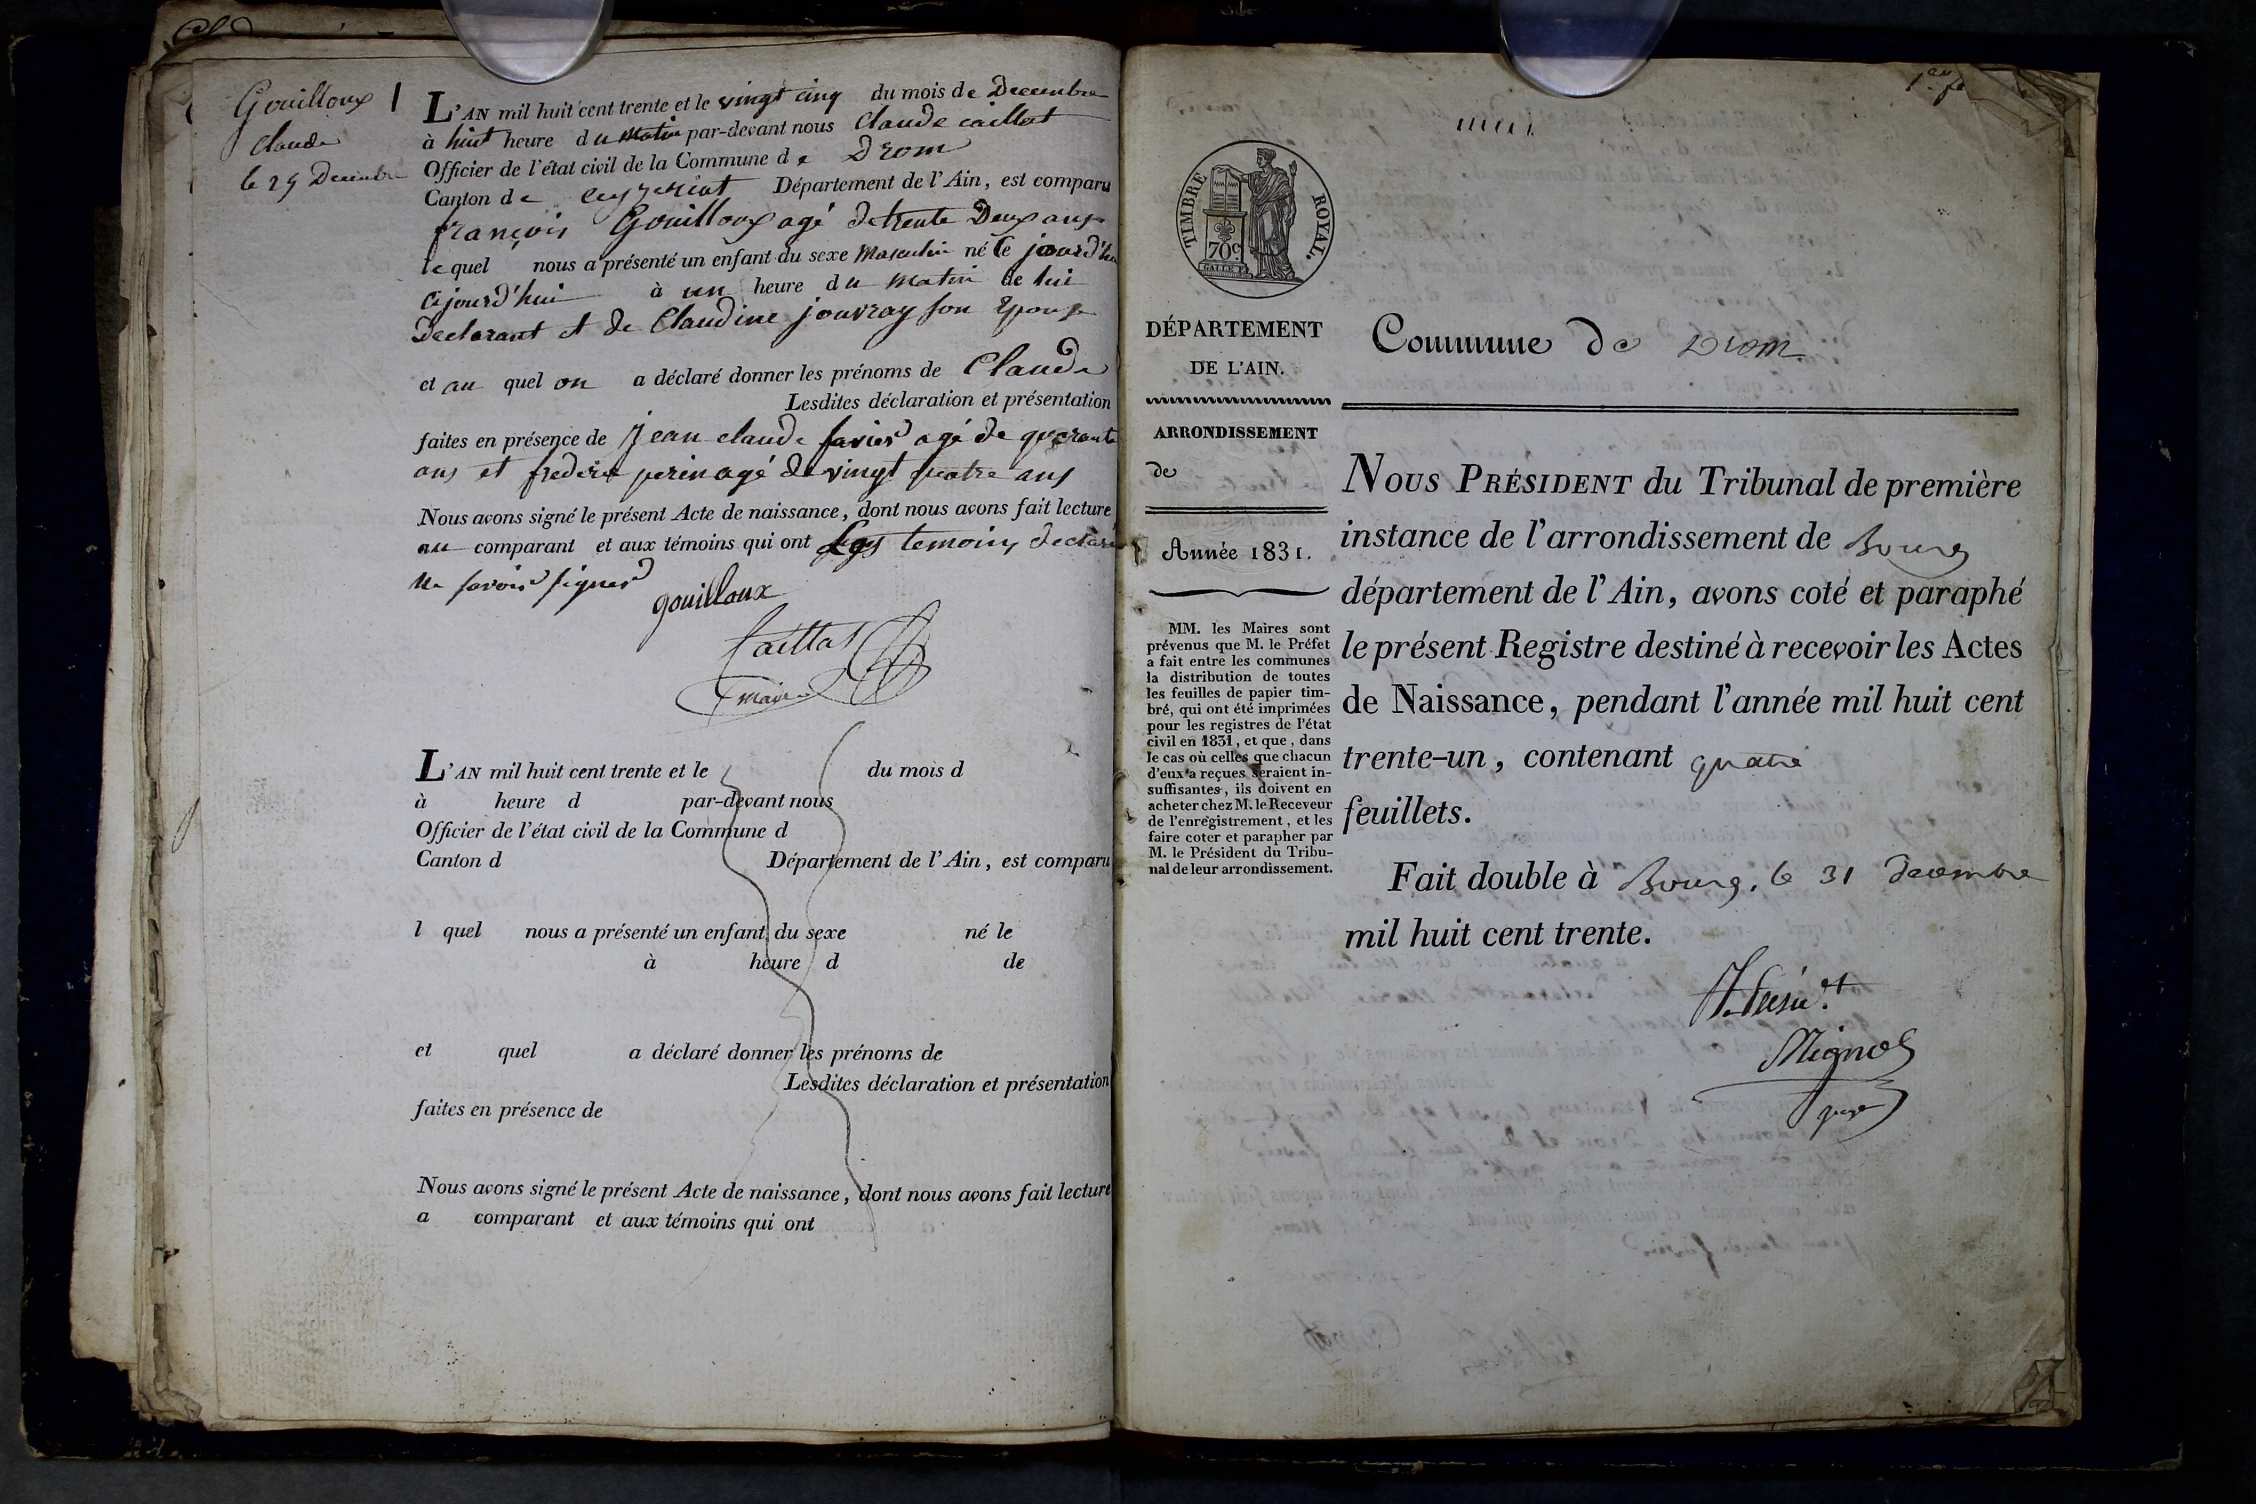 Gouilloux
Claude
le 25 Decembre
L'AN mil huit cent trente et le vingt cinq du mois de Decembre
à huit heure du matin par-devant nous Claude caillat
Officier de l'état civil de la Commune de Drom
Canton de ceyzeriat Département de l'Ain, est comparu
françois Gouilloux agé de trente Deux ans
lequel nous a présenté un enfant du sexe masculin né le jourd'hui
cejourd'hui à un heure du matin de lui
Declarant et de Claudine jouvray son Epouse
et au quel on a déclaré donner les prénoms de Claude
Lesdites déclaration et présentation
faites en présence de jean claude favier agé de quarante
ans et frederic perin agé de vingt quatre ans
Nous avons signé le présent Acte de naissance, dont nous avons fait lecture
au comparant et aux témoins qui ont Les temoins declaré
ne savoir signer
gouilloux
Caillat
maire
L'AN mil huit cent trente et le du mois d
à heure d par-devant nous
Officier de l'état civil de la Commune d
Canton d Département de l'Ain, est comparu
l quel nous a présenté un enfant du sexe né le
à heure d de
et quel a déclaré donner les prénoms de
Lesdites déclaration et présentation
faites en présence de
Nous avons signé le présent Acte de naissance, dont nous avons fait lecture
a comparant et aux témoins qui ont
TIMBRE ROYAL.
70c
DÉPARTEMENT
DE L'AIN.
ARRONDISSEMENT
de
Année 1831.
MM. les Maires sont
prévenus que M. le Préfet
a fait entre les communes
la distribution de toutes
les feuilles de papier tim-
bré, qui ont été imprimées
pour les registres de l'état
civil en 1831, et que, dans
le cas où celles que chacun
d'eux a reçues seraient in-
suffisantes, ils doivent en
acheter chez M. le Receveur
de l'enregistrement, et les
faire coter et parapher par
M. le Président du Tribu-
nal de leur arrondissement.
Commune de Drom
NOUS PRÉSIDENT du Tribunal de première
instance de l'arrondissement de Bourg
département de l'Ain, avons coté et paraphé
le présent Registre destiné à recevoir les Actes
de Naissance, pendant l'année mil huit cent
trente-un, contenant quatre
feuillets.
Fait double à Bourg, le 31 decembre
mil huit cent trente.
juge